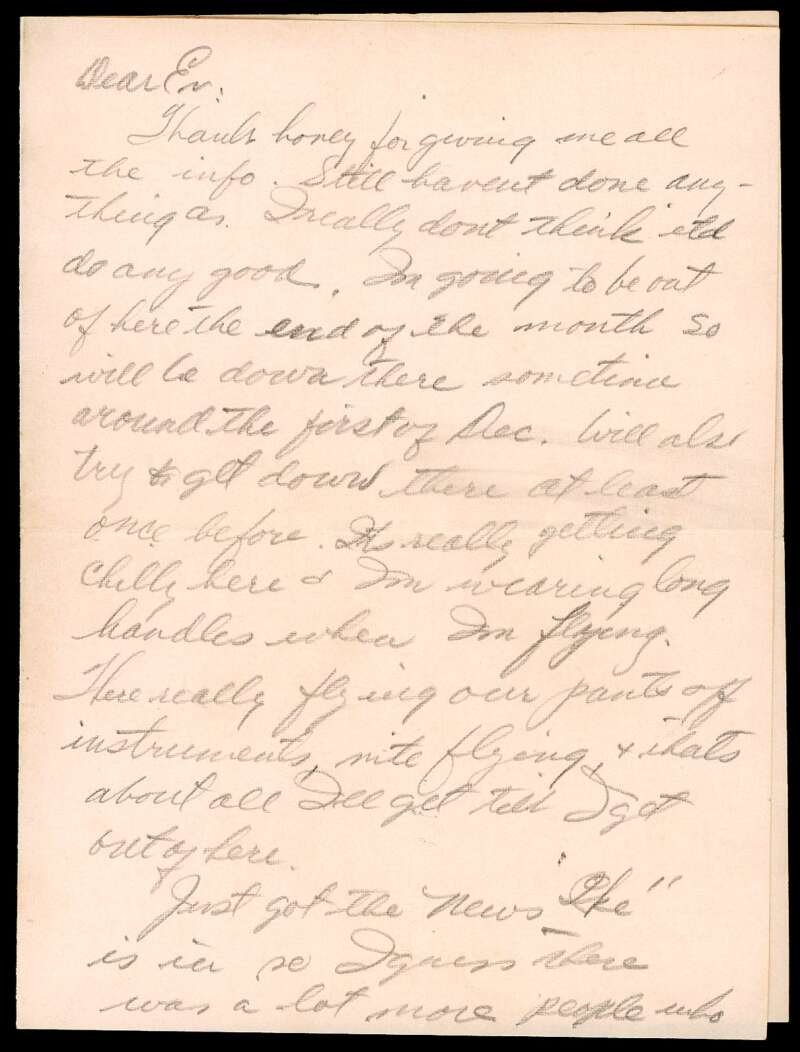 Dear Ev.
Thanks honey for giving me all
the info. Still havent done any-
thing as. I really dont think itd
do any good. Im going to be out
of here the end of the month so
will be down there sometime
around the first of Dec. Will also
try to get down there at least
once before. Its really getting
chilly here & Im wearing long
handles when Im flying.
Were really flying our pants off
instruments, nite flying, & thats
about all Ill get till I get
out of here.
Just got the news "Ike"
is in so I guess there
was a lot more people who